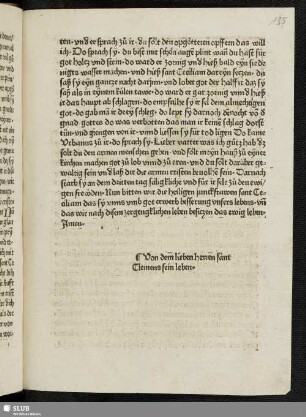 185
ten· vnd er sprach zů ir· du solt den apgötteren opffern das will
ich· Do sprach sy· du bist mit sehen augen plint wañ du hast für
got holtz vnd stein· do ward er zornig vnd hieß bald eyn sie-
niges wasser machen· vnd hieß sant Ceciliam dareyn setzen· da
saß sy eyn gantze nacht daryn· vnd lobet got der halff ir das sy
saß als in eynem külen tawe· do ward er gar zornig vnnd hieß
ir das haupt ab schlagen· do empfulhe sy ir sel dem almechtigen
got· do gab mã ir drey schleg· do lept sy darnoch
gnad gottes do was verbotten das man ir keine schlag dorfft
tůn· vnd giengen von ir· vnnd liessen sy für tod ligen Do kame
Vrbanus zů ir· do sprach sy· Lieber vatter was ich gůtz hab dz
solt du den armen menschen geben· vnd solt meyn hauß zů eyner
kirchen machen got zů lob vnnd zů eren· vnd du solt darüber ge-
waltig sein vnd laß dir die armen cristen beuolhen sein· Darnach
starb sy an dem dritten tag säligkliche vnd für ir sel zů den ewi-
gen freüden· Nun bitten wir die heiligen junckfrawen sant Ce-
ciliam das sy vnns vmb got erwerb besserung vnsers lebens· vñ
das wir nach disem zergengklichen leben besitzen das ewig leben·
Amen·
¶ Von dem lieben herren sant
Clemens sein leben·
SLUB